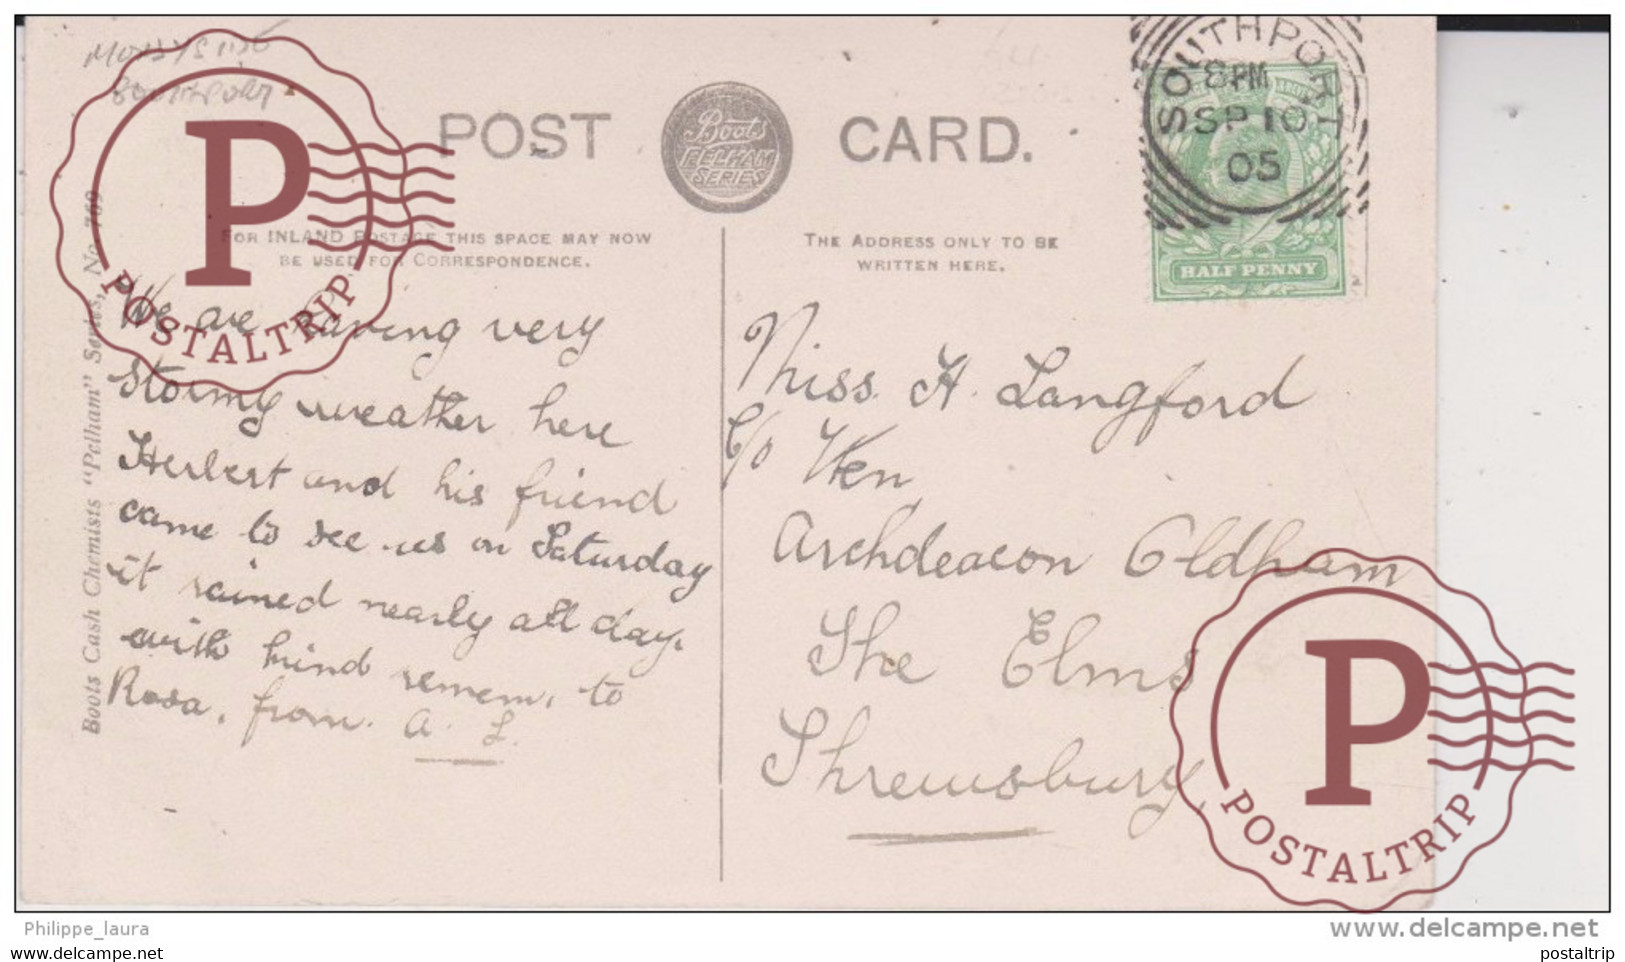 SOUTHPORT
POST CARD.
Boots
PELHAM
SERIES
SOUTHPORT
8PM
SP 10
05
HALF PENNY
FOR INLAND POSTAGE THIS SPACE MAY NOW
BE USED FOR CORRESPONDENCE.
THE ADDRESS ONLY TO BE
WRITTEN HERE.
We are having very
Stormy weather here
Herbert and his friend
came to see us on Saturday
it rained nearly all day.
with kind remem. to
Rosa, from A. L.
Miss. H. Langford
C/o Ven
Archdeacon Oldham
The Elms
Shrewsbury
Boots Cash Chemists "Pelham" Series, No. 769
P
POSTALTRIP
P
POSTALTRIP
Philippe_laura
www.delcampe.net
postaltrip
postaltrip